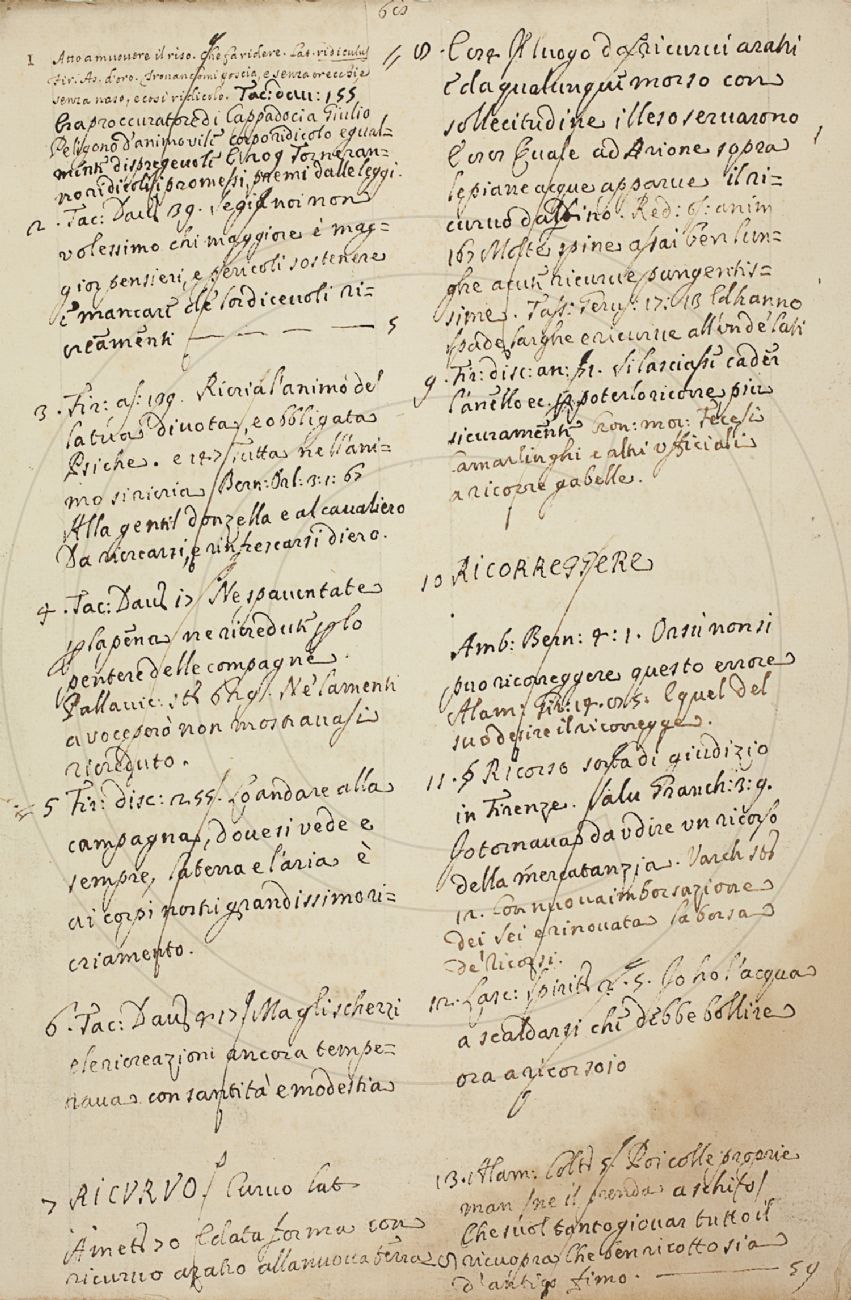 60
1 Atto a muovere il riso. Che fa ridere. Lat. ridiculus
Fir. As. d'oro.
senza naso, e così ridicolo. Tac: Dau: 155
Era proccuratore di Cappadocia Giulio
Peligono d'animo vile corpo ridicolo e gual=
mente dispregevole
no ridicoli i promessi premi dalle leggi.
2. Tac: Dau: 39. Segià noi non
volessimo chi maggiore è mag=
gior pensieri, e pericoli sostenere
e mancare de' lor dicevoli ri=
creamenti — — — — 5
3. Fir: as: 139. Ricria l'animo de'
la tua divota, e obbligata
Psiche. e 147 Tutta nell'ani=
mo si ricria Bern: Orl: 3: 1: 67
Alla gentil donzella e al cavaliero
Da ricrearsi, e rinfrescarsi diero.
4. Tac: Dau: 17 Ne spaventate
p la pena ne ricredute p lo
pentere delle compagne.
Pallavic: st: Ne lamenti
a voce però non mostravasi
ricreduto.
5 Fir: disc: 255. Lo andare alla
campagna, dove si vede e
sempre, la terra e l'aria è
ai corpi nostri grandissimo ri=
criamento.
6. Tac: Dau: 417 Ma gli scherzi
e le ricreazioni ancora tempe=
rava con santità e modestia
7 RICURVO Curvo Lat
Amet: 70 E data forma con
ricurvo aratro alla nuova terra
8. luogo de' ricurvi aratri
E da qualunque morso con
sollecitudine illeso servarono
Quale ad Arione sopra
le piane acque apparve il ri=
curvo dalfino. Red: anim
167 Molte spine assai ben lun=
ghe acute ricurve pungentis=
sime. Tass: Gerus: 17: 18 Ed hanno
spade larghe e ricurve all'un de' lati
9. Fir: disc: an: 51. Si lasciasse cader
l'anello ec p poterlo ricorre più
sicuramente Fecesi
Camarlinghi e altri ufficiali
a ricorre gabelle.
10 RICORREGGERE
Amb: Bern: 4: 1. Orsù non si
puo ricorreggere questo errore
Alam: Gir: 14. E quel del
suo desire il ricorregge.
11. § Ricorso sorta di giudizio
in Firenze. Salv Granch: 3: 9.
Io tornava da udire un ricorso
della mercatanzia. Varch. sto
12. Con nuova imborsazione
dei Sei e rinovata la borsa
de' Ricorsi.
12. Lasc: Spirit: 2. 5. Io ho l'acqua
a scaldarsi che debbe bollire
ora a ricorsoio
13. Alam: Colt: 5 Poi colle proprie
man ne il prenda a schifo
Che suol tanto giovar tutto il
ricuopra Che ben ricotto sia
d'antigo fimo. — 59